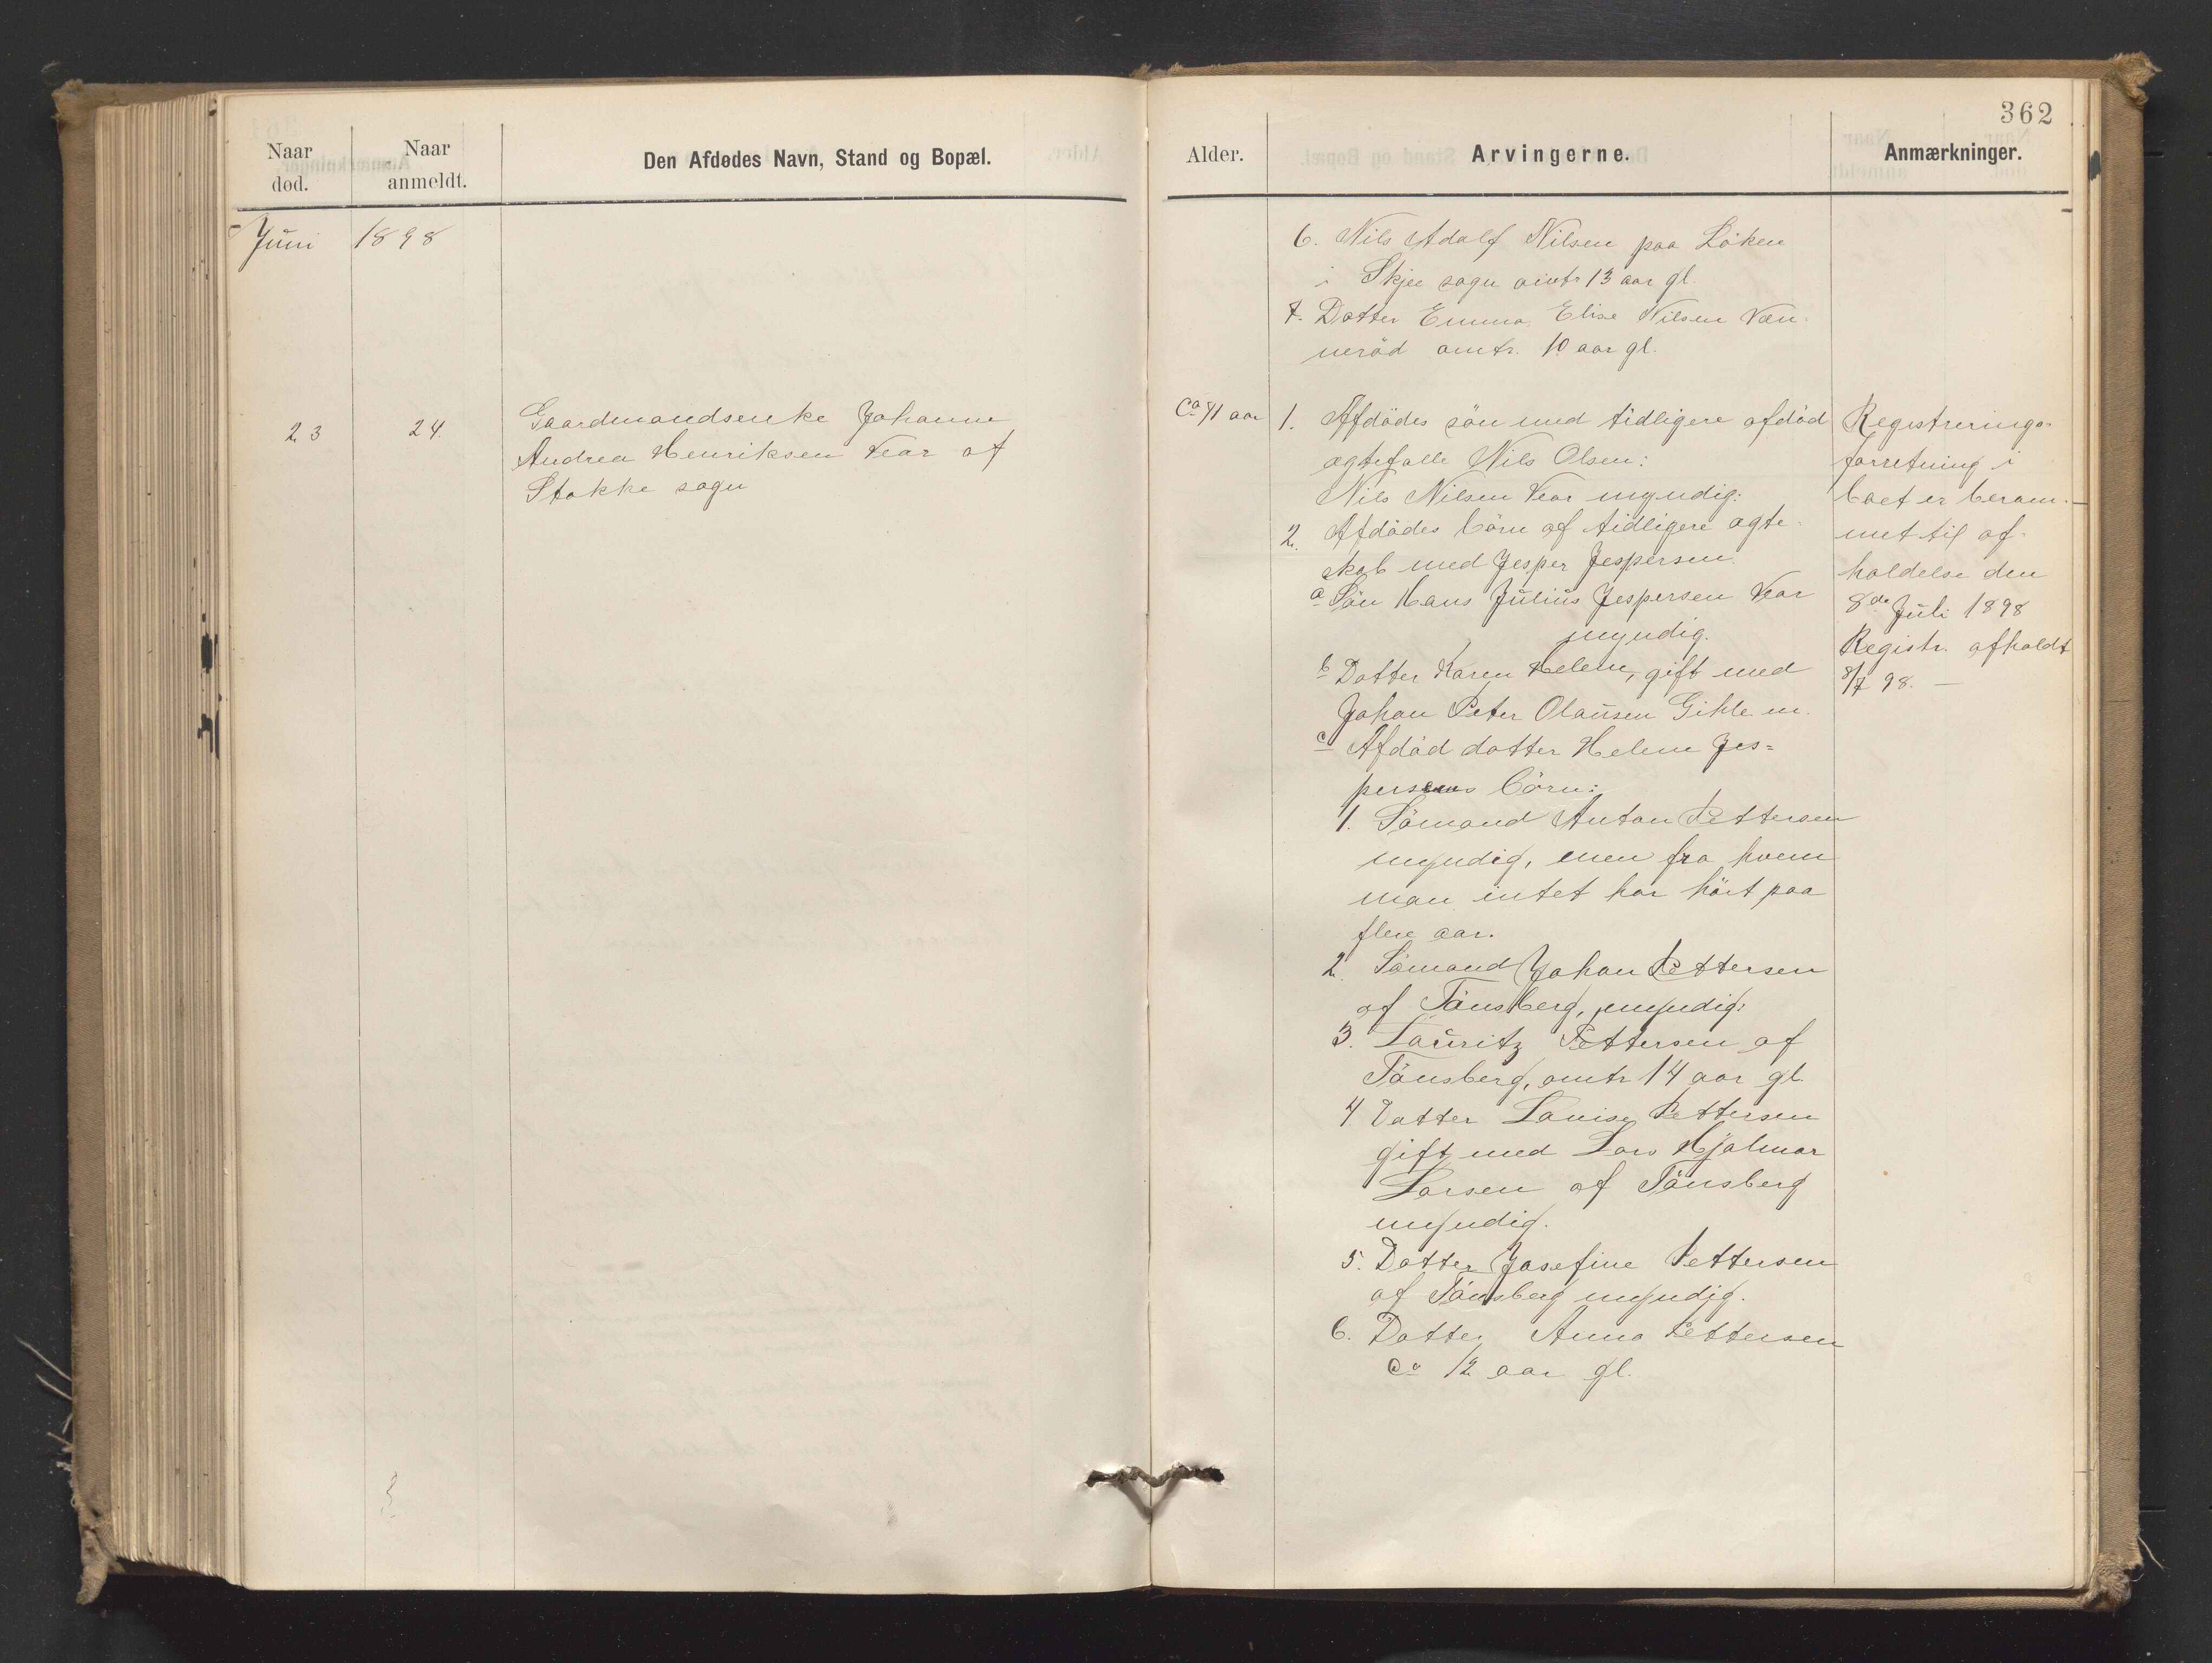 362
Naar død.
Naar anmeldt.
Den Afdødes Navn, Stand og Bopæl.
Alder.
Arvingerne.
Anmærkninger.
Juni 1898
6. Nils Adolf Nilsen paa Løken
i Skjee sogn omtr 13 aar gl.
7. Datter Emma Elise Nilsen Væn-
nerød omtr. 10 aar gl.
23
24.
Gaardmandsenke Johanne
Andrea Henriksen Vear af
Stokke sogn
Ca 71 aar
1. Afdødes søn med tidligere afdød
ægtefælle Nils Olsen:
Nils Nilsen Vear myndig:
2. Afdødes børn af tidligere ægte-
skab med Jesper Jespersen
a Søn Hans Julius Jespersen Vear
myndig.
b Datter Karen Helene, gift med
Johan Peter Olausen Gihle m.
c Afdød datter Helene Jes=
persens børn:
1. Sømand Anton Pettersen
myndig, men fra hvem
man intet har hørt paa
flere aar.
2. Sømand Johan Pettersen
af Tønsberg, myndig:
3. Lauritz Pettersen af
Tønsberg, omtr 14 aar gl.
4 Datter Lovise Pettersen
gift med Lars Hjalmar
Larsen af Tønsberg
myndig.
5. Datter Josefine Pettersen
af Tønsberg myndig.
6. Datter Anna Pettersen
Ca 12 aar gl.
Registrerings-
forretning i
boet er beram-
met til af-
holdelse den
8de Juli 1898
Registr. afholdt
8/7 98. —